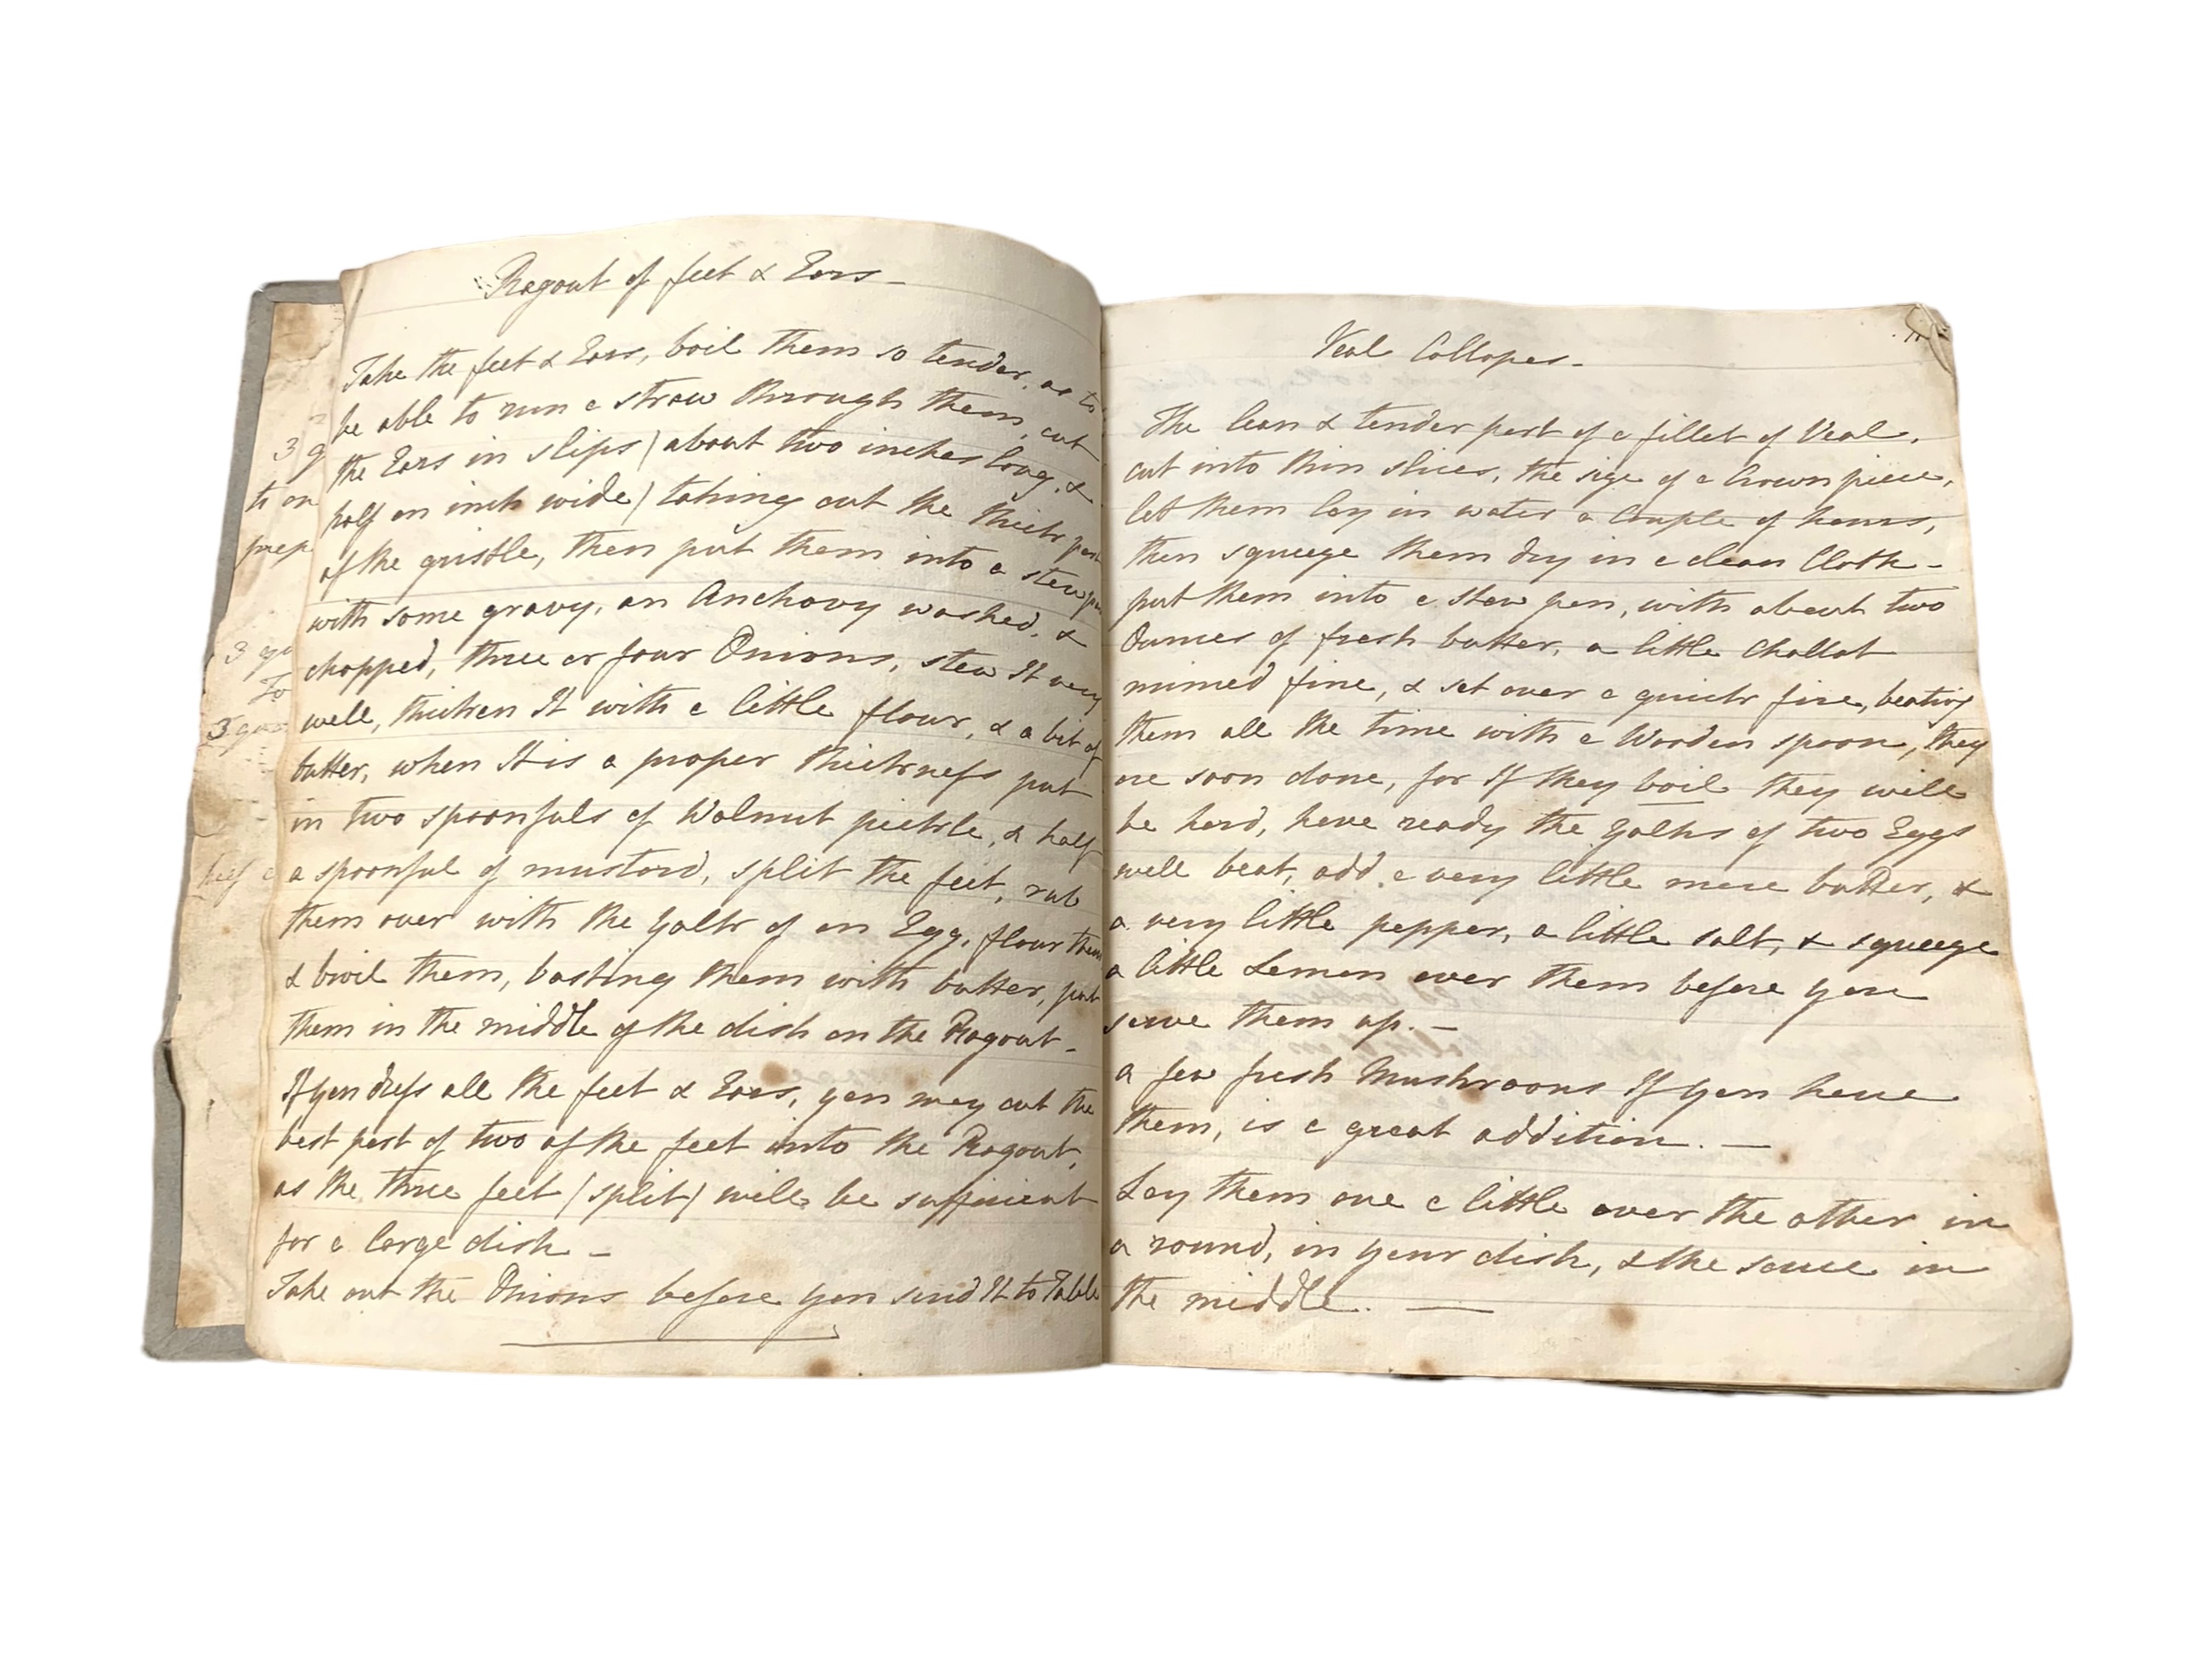 Ragout of feet & Ears -
Take the feet & Ears, boil them so tender, as to
be able to run a straw through them, cut
the Ears in slips (about two inches long, &
half an inch wide) taking out the thick part
of the gristle, then put them into a stew pan
with some gravy, an Anchovy washed, &
chopped, three or four Onions, stew It very
well, thicken It with a little flour, & a bit of
butter, when It is a proper thickness put
in two spoonfuls of Walnut pickle, & half
a spoonful of mustard, split the feet, rub
them over with the Yolk of an Egg, flour them
& broil them, basting them with butter, put
them in the middle of the dish on the Ragout -
If you dress all the feet & Ears, you may cut the
best part of two of the feet into the Ragout,
as the three feet (split) will be sufficient
for a large dish -
Take out the Onions before you send It to Table
3 g
to on
prep
3 qu
To
3 qu
half a
Veal Collopes -
The lean & tender part of a fillet of Veal,
cut into thin slices, the size of a Crown piece,
let them lay in water a Couple of hours,
then squeeze them dry in a clean Cloth -
put them into a stew pan, with about two
Ounces of fresh butter, a little Challot
minced fine, & set over a quick fire, beating
them all the time with a Wooden spoon, they
are soon done, for If they boil they will
be hard, have ready the Yolks of two Eggs
well beat, add a very little more butter, &
a very little pepper, a little salt, & squeeze
a little Lemon over them before you
serve them up. -
a few fresh Mushrooms If you have
them, is a great addition. -
Lay them one a little over the other in
a round, in your dish, & the sauce in
the middle. -